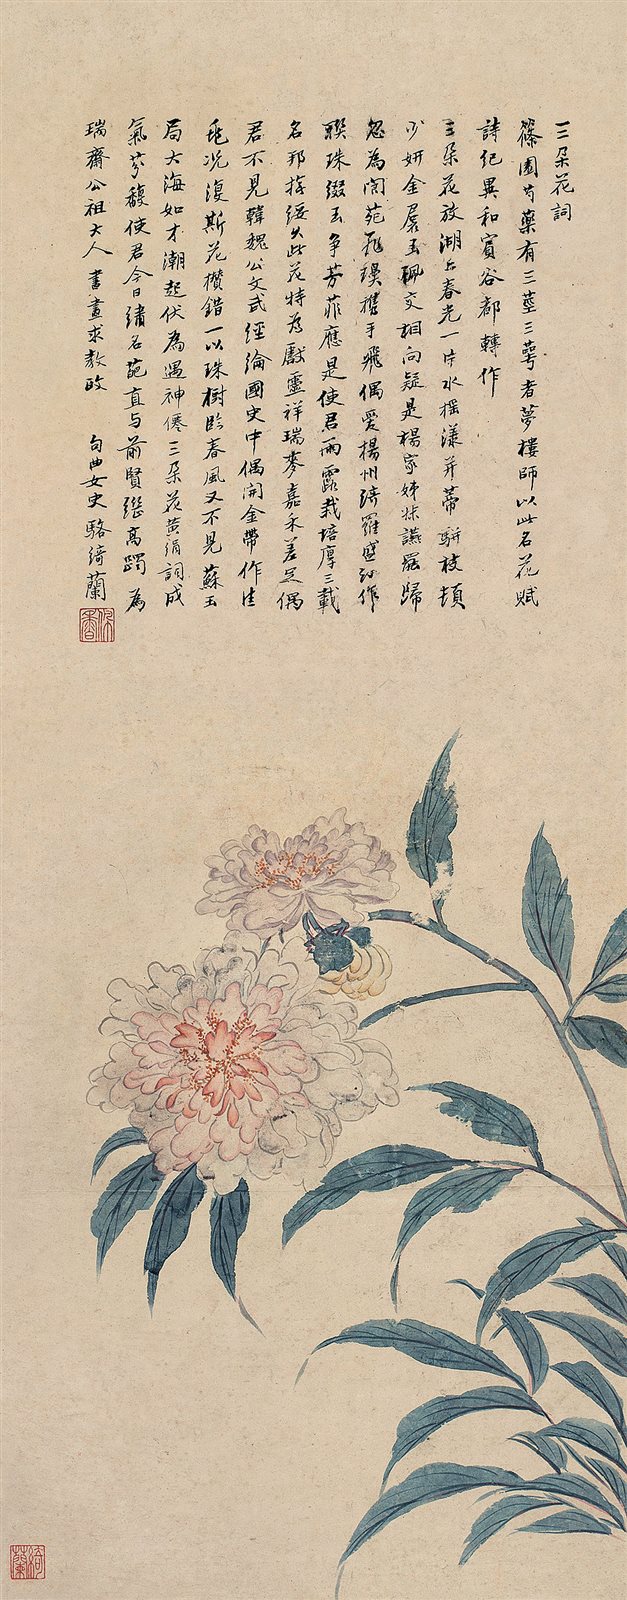 三朵花詞
篠園芍藥有三莖三萼者夢樓師以此名花賦
詩紀異和賓谷都轉作
三朵花放湖上春光一片水搖漾并蒂駢枝頓
妍金屏玉珮交相向疑是楊家姊妹讌罷歸
忽為閬苑飛瓊攜手飛偶愛揚州綺羅盛幻作
聯珠綴玉爭芳菲應是使君雨露栽培厚三載
名邦此花特為獻靈祥瑞麥嘉禾差足偶
君不見韓魏公文武經綸國史中偶開金帶作佳
況復斯花攢錯一以珠樹臨春風又不見蘇玉
局大海如才潮起伏為遇神僊三朵花黃絹詞成
氣芬馥使君今日繡名葩直与前賢繼高躅 為
瑞齋公祖大人 書畫求教政 句曲女史駱綺蘭
佩香
綺蘭